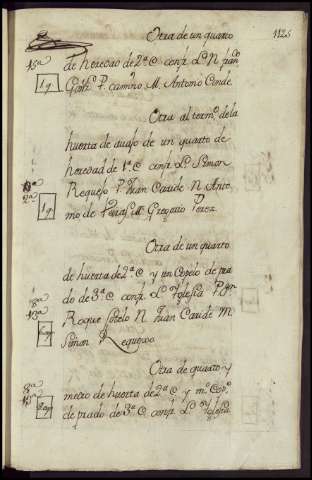 Otra de un quarto
1125
15ª de heredad de 2ª C conf. L. N. Franco
1 q. P. camino M. Antonio Conde
Otra al termo. de la
huerta de auajo de un quarto de
heredad de 1ª C conf. L. Simon
Requejo P. Juan Caride N. Anto
2ª 1 q. nio de M. Gregorio Perez
Otra de un quarto
de huerta de 2ª C y un Copelo de pra
8ª do de 3ª C conf. L. Yglesia P. Dn
13ª Roque Sotelo N. Juan Caride M.
Simon Requexo
Otra de quarto y
8ª medio de huerta de 2ª C y mº Copº
de prado de 3ª C conf. L. Yglesia